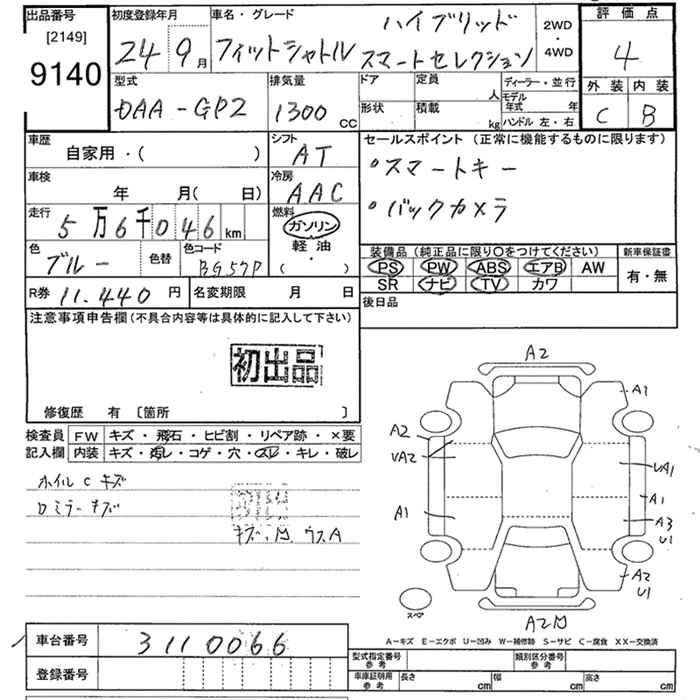 出品番号
[2149]
9140
初度登録年月
24 9月
車名・グレード
ハイブリッド
フィットシャトル スマートセレクション
2WD
・
4WD
評価点
4
外装 内装
C B
型式
DAA-GP2
排気量
1300 CC
ドア 定員 人
形状 積載 kg
ディーラー・並行
モデル年式 年
ハンドル 左・右
車歴
自家用・( )
シフト
AT
車検
年 月( 日)
冷房
AAC
走行
5万6千046km
燃料
ガソリン
軽油
( ・ )
色
ブルー
色替
色コード
BG57P
R券 11.440円
名変期限 月 日
セールスポイント(正常に機能するものに限ります)
°スマートキー
°バックカメラ
装備品(純正品に限り〇をつけてください)
PS PW ABS エアB AW
SR ナビ TV カワ
新車保証書
有・無
後日品
注意事項申告欄(不具合内容等は具体的に記入して下さい)
初出品
修復歴 有 [箇所 ]
検査員
記入欄
FW キズ・飛石・ヒビ割・リペア跡・×要
内装 キズ・汚レ・コゲ・穴・スレ・キレ・破レ
ホイルC キズ
ロミラーキズ
A2
A1
A2
VA2
VA1
A1
A1
A3
U1
A2
U1
スペア
A2
A－キズ E－エクボ U－凹み W－補修跡 S－サビ C－腐食 XX－交換済
車台番号 3110066
登録番号
型式指定番号
参考
類別区分番号
参考
車庫証明用
参考
長さ cm 幅 cm 高さ cm